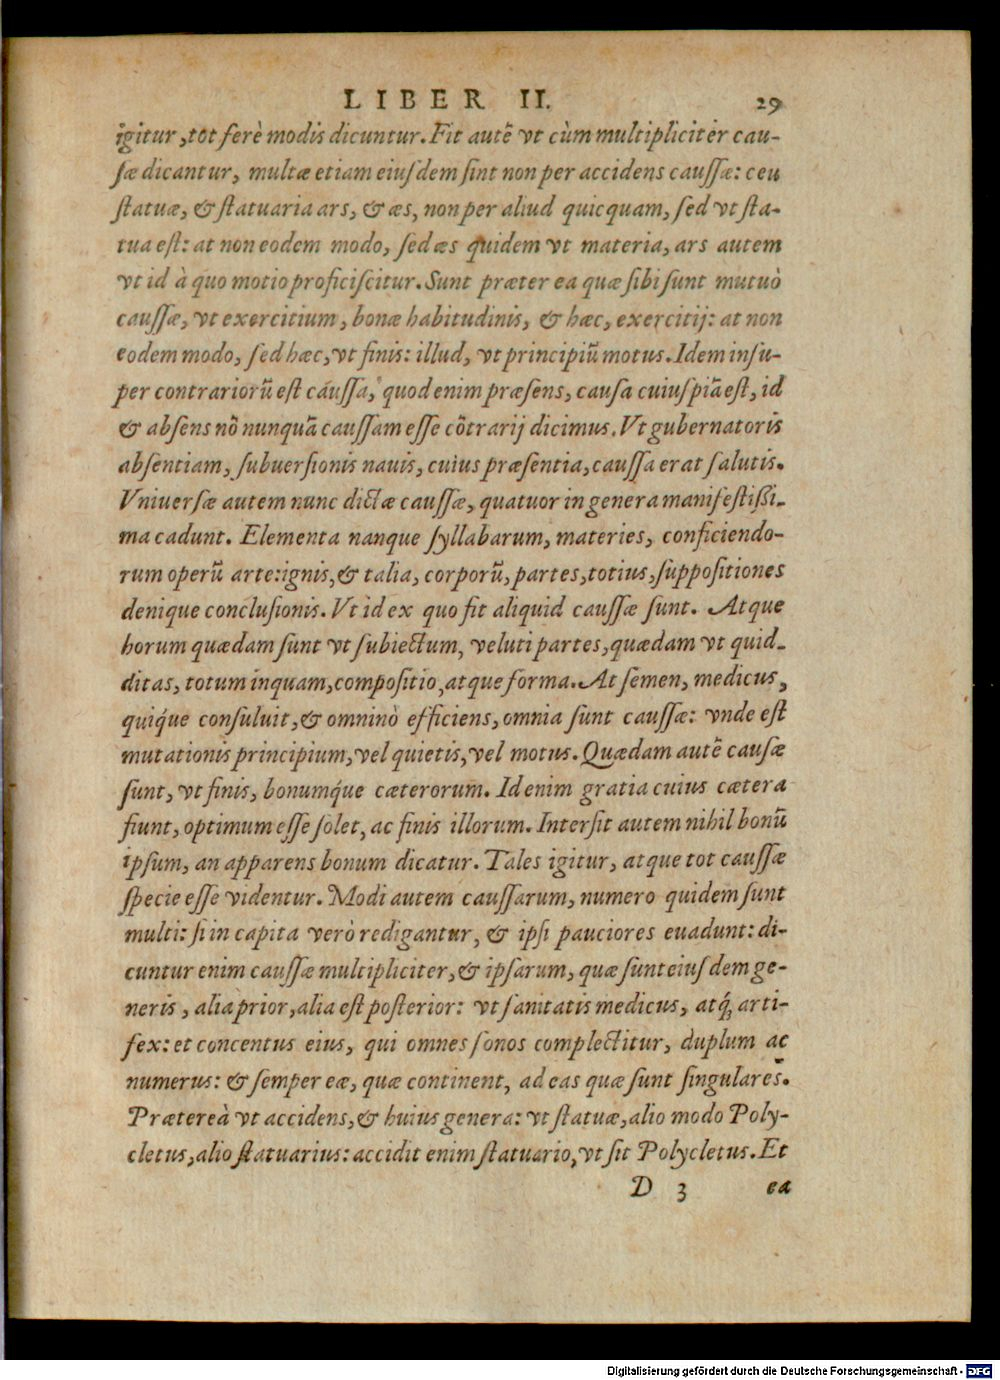 LIBER II. 29
igitur, tot ferè modis dicuntur. Fit autẽ vt cùm multipliciter cau-
ſæ dicantur, multæ etiam eiuſdem ſint non per accidens cauſſæ: ceu
ſtatuæ, & ſtatuaria ars, & æs, non per aliud quicquam, ſed vt ſta-
tua eſt: at non eodem modo, ſed æs quidem vt materia, ars autem
vt id à quo motio proficiſcitur. Sunt præter ea quæ ſibi ſunt mutuò
cauſſæ, vt exercitium, bonæ habitudinis, & hæc, exercitij: at non
eodem modo, ſed hæc, vt finis: illud, vt principiũ motus. Idem inſu-
per contrariorũ eſt cauſſa, quod enim præſens, cauſa cuiuſpiã eſt, id
& abſens nõ nunquã cauſſam eſſe cõtrarij dicimus. Vt gubernatoris
abſentiam, ſubuerſionis nauis, cuius præſentia, cauſſa erat ſalutis.
Vniuerſæ autem nunc dictæ cauſſæ, quatuor in genera manifeſtißi-
ma cadunt. Elementa nanque ſyllabarum, materies, conficiendo-
rum operũ arte: ignis, & talia, corporũ, partes, totius, ſuppoſitiones
denique concluſionis. Vt id ex quo fit aliquid cauſſæ ſunt. Atque
horum quædam ſunt vt ſubiectum, veluti partes, quædam vt quid-
ditas, totum inquam, compoſitio, atque forma. At ſemen, medicus,
quiq́ue conſuluit, & omninò efficiens, omnia ſunt cauſſæ: vnde eſt
mutationis principium, vel quietis, vel motus. Quædam autẽ cauſæ
ſunt, vt finis, bonumq́ue cæterorum. Id enim gratia cuius cætera
fiunt, optimum eſſe ſolet, ac finis illorum. Interſit autem nihil bonũ
ipſum, an apparens bonum dicatur. Tales igitur, atque tot cauſſæ
ſpecie eſſe videntur. Modi autem cauſſarum, numero quidem ſunt
multi: ſi in capita verò redigantur, & ipſi pauciores euadunt: di-
cuntur enim cauſſæ multipliciter, & ipſarum, quæ ſunt eiuſdem ge-
neris, alia prior, alia eſt poſterior: vt ſanitatis medicus, atq́ꝫ arti-
fex: et concentus eius, qui omnes ſonos complectitur, duplum ac
numerus: & ſemper eæ, quæ continent, ad eas quæ ſunt ſingulares.
Prætereà vt accidens, & huius genera: vt ſtatuæ, alio modo Poly-
cletus, alio ſtatuarius: accidit enim ſtatuario, vt ſit Polycletus. Et
D 3 ea
Digitalisierung gefördert durch die Deutsche Forschungsgemeinschaft - DFG